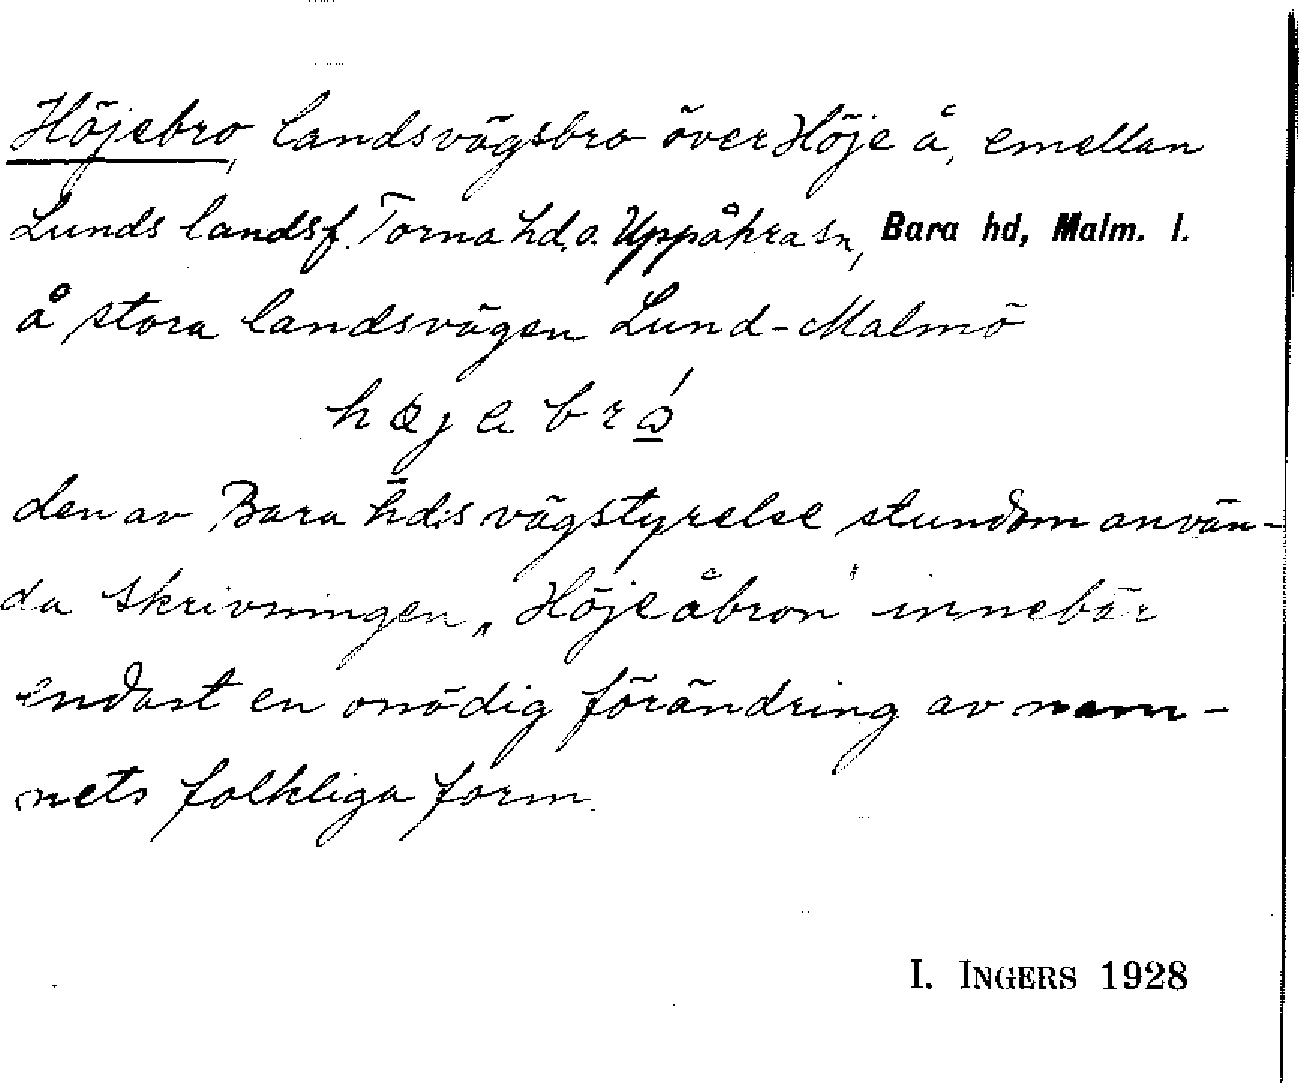 Höjebro, landsvägsbro över Höje å, emellan
Lunds landsf. Torna hd. o. Uppåkra sn, Bara hd, Malm. l.
å stora landsvägen Lund-Malmö
den av Bara hds vägstyrelse stundom använ-
da skrivningen „Höjeåbron" innebär
endast en onödig förändring av nam-
nets folkliga form.
I. INGERS 1928